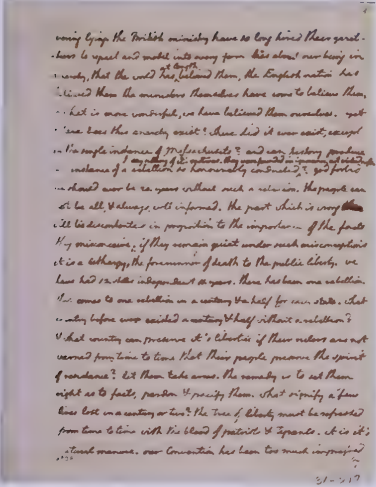 lying the British ministry have so long hired their gazet-
-teers to repeat and model into every form lies about our being in
anarchy, that the world has at length believed them, the English nation has
believed them, the ministers themselves have come to believe them,
& what is more wonderful, we have believed them ourselves. yet
where does this anarchy exist? where did it ever exist, except
in the single instance of Massachusets? and can history produce
an instance of a rebellion so honourably conducted? I say nothing of it's motives. they were founded in ignorance, not wickedness. god forbid
we should ever be 20. years without such a rebellion. the people can
not be all, & always, well informed. the part which is wrong
will be discontented in proportion to the importance of the facts
they misconceive; if they remain quiet under such misconceptions
it is a lethargy, the forerunner of death to the public liberty. we
have had 13. states independant 11. years. there has been one rebellion.
that comes to one rebellion in a century & a half for each state. what
country before ever existed a century & half without a rebellion?
& what country can preserve it's liberties if their rulers are not
warned from time to time that their people preserve the spirit
of resistance? let them take arms. the remedy is to set them
right as to facts, pardon & pacify them. what signify a few
lives lost in a century or two? the tree of liberty must be refreshed
from time to time with the blood of patriots & tyrants. it is it's
natural manure. our Convention has been too much impressed